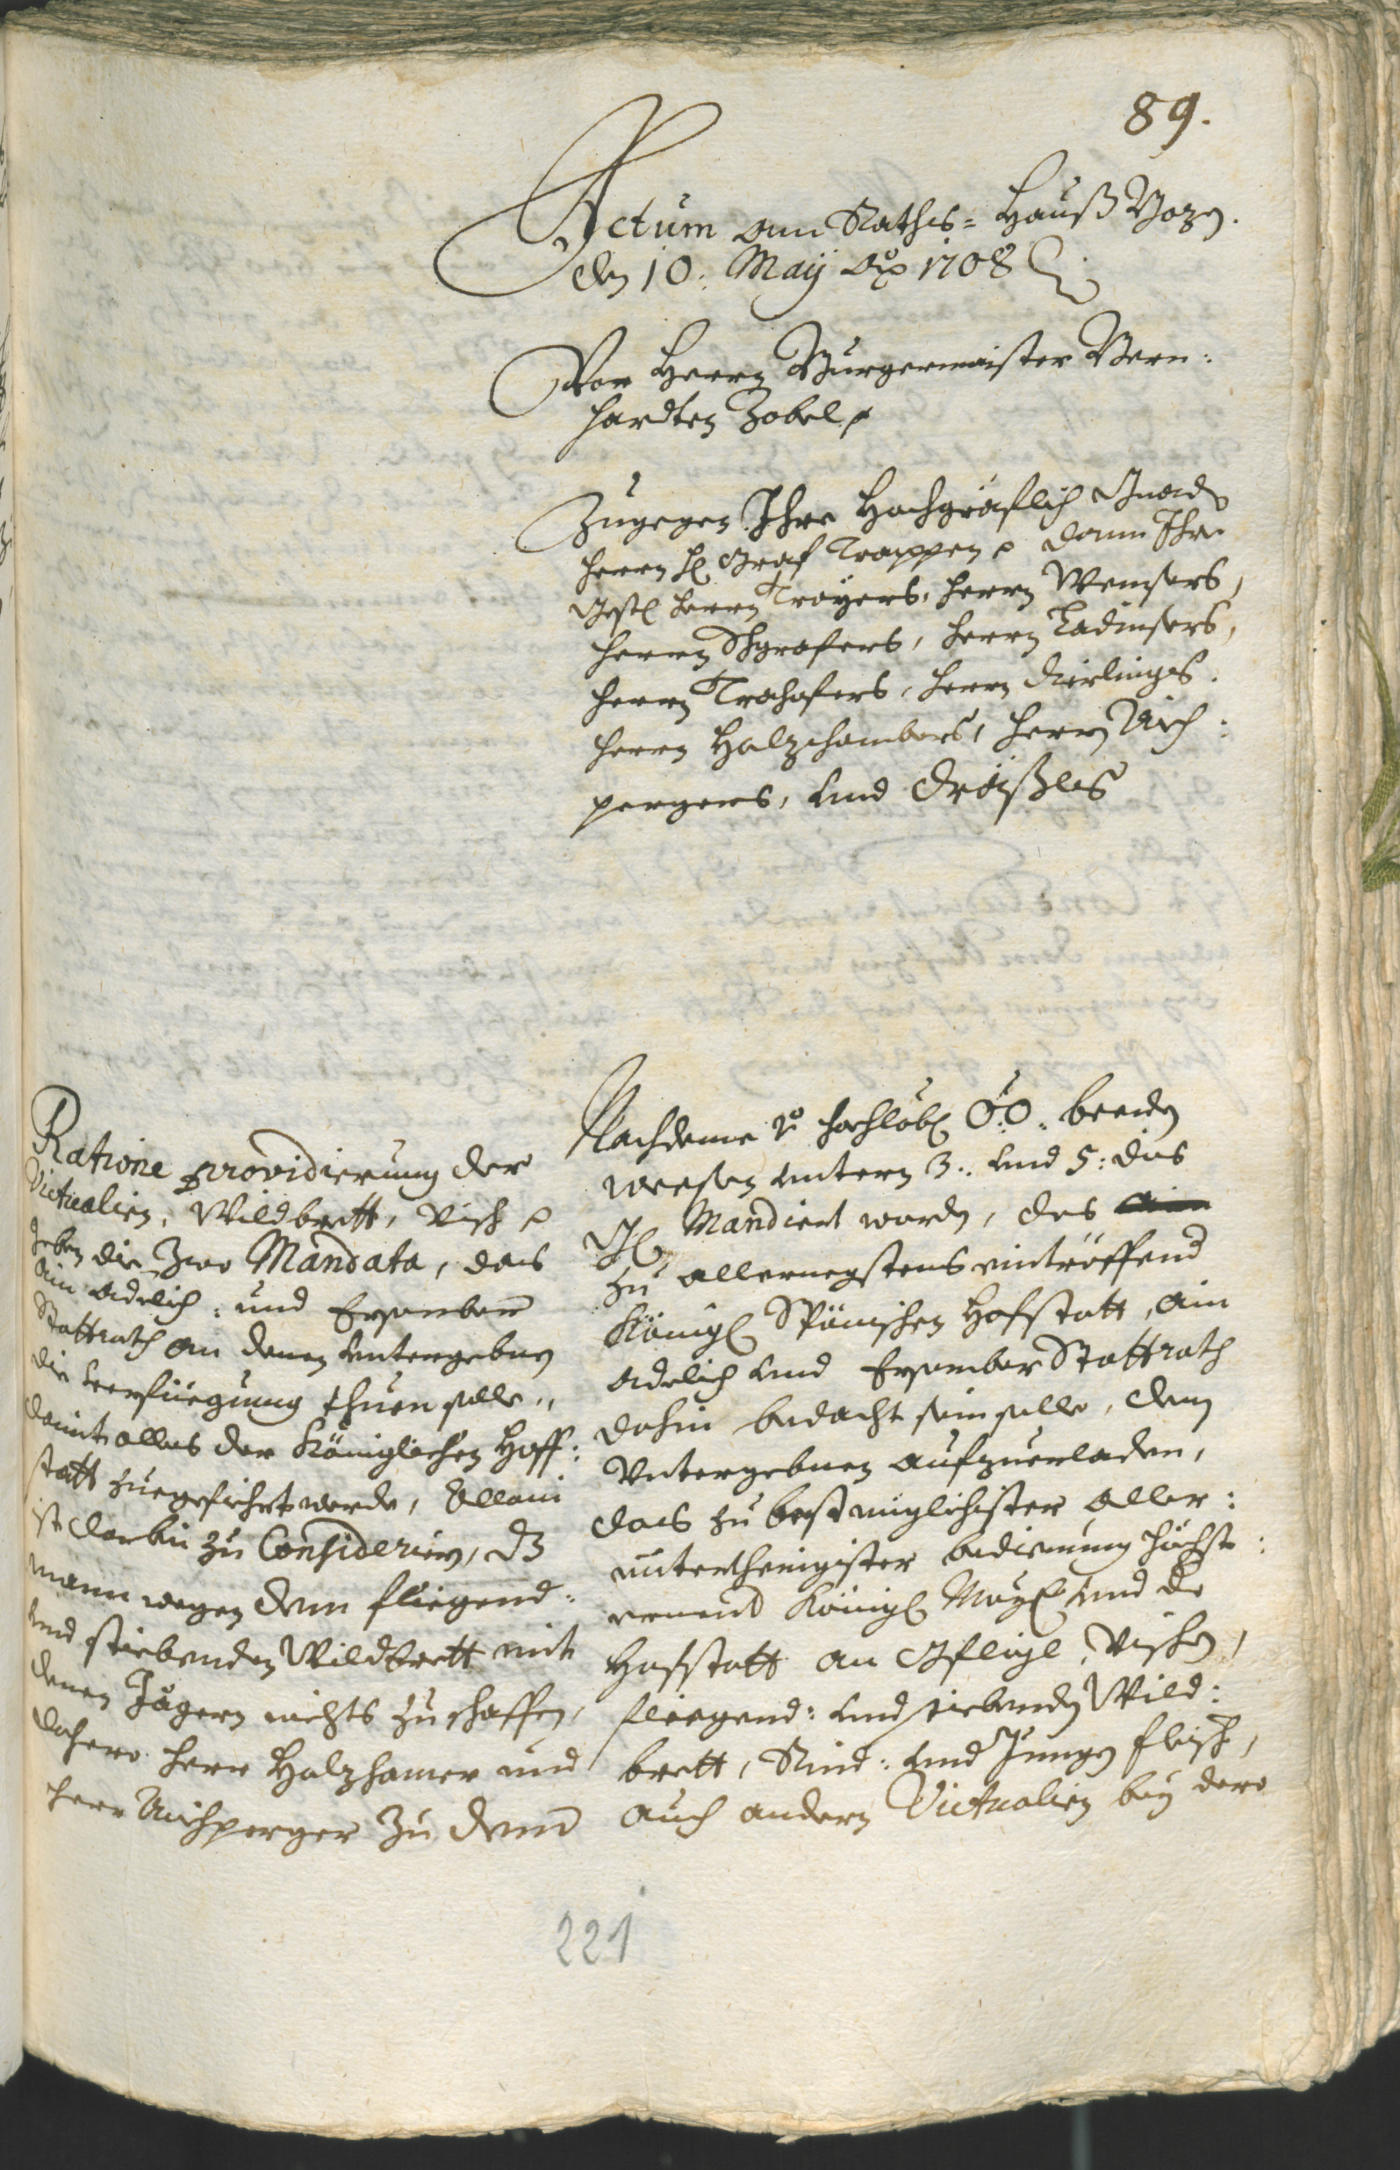 89.
Actum am Rathshauß Bozen.
den 10. Maÿ Ao 1708
Vor Herrn Burgermaister Bern:
hardten Zobel
Zugegen Ihre Hochgräflich Gnad
Herrn H Graf Trappen dann Ihr
Gestr Herrn Troÿers, Herrn Wensers,
Herrn Grafers, Herrn Ladinsers,
Herrn Trochofers, Herrn Dierlings.
Herrn Holzhambers, Herrn Aich:
pergers, und Dräxls
Ratione providierung der
Victualien, Wildbrett, Visch
geben die Zwo Mandata, das
ain adelich: und Ersamber
Stattrath an denen untergebnen
die verfüegung thuen solle,
damit alles der Königlichen Hoff:
statt zuegefiehrt werde, Allain
ist darbei zu Considerieren, dz
mann wegen dem fliegend:
und stiebenden Wildbrett mit
denen Jägern nichts zu schaffen,
dahero Herr Holzhamer und
Herr Aichperger zu dem
Nachdeme von hochlöbl O:Ö: beeden
wesen untern 3. und 5: dis
Mandiert worden, das
zu allernegstens eintröffend
Königl Spänischen Hofstatt, ain
adelich und Ersamber Stattrath
dahin bedacht sein solle, dem
Untergebnen aufzuerladen,
das zu bestmiglichister aller:
unterthenigister bedienung höchst:
ernent Königl Maÿt und der
Hofstatt an Gefligl, Vischen,
fliegend: und stiebenden Wild:
brett, Rind: und Jungen fleisch,
auch andern Victualien beÿ dero
221